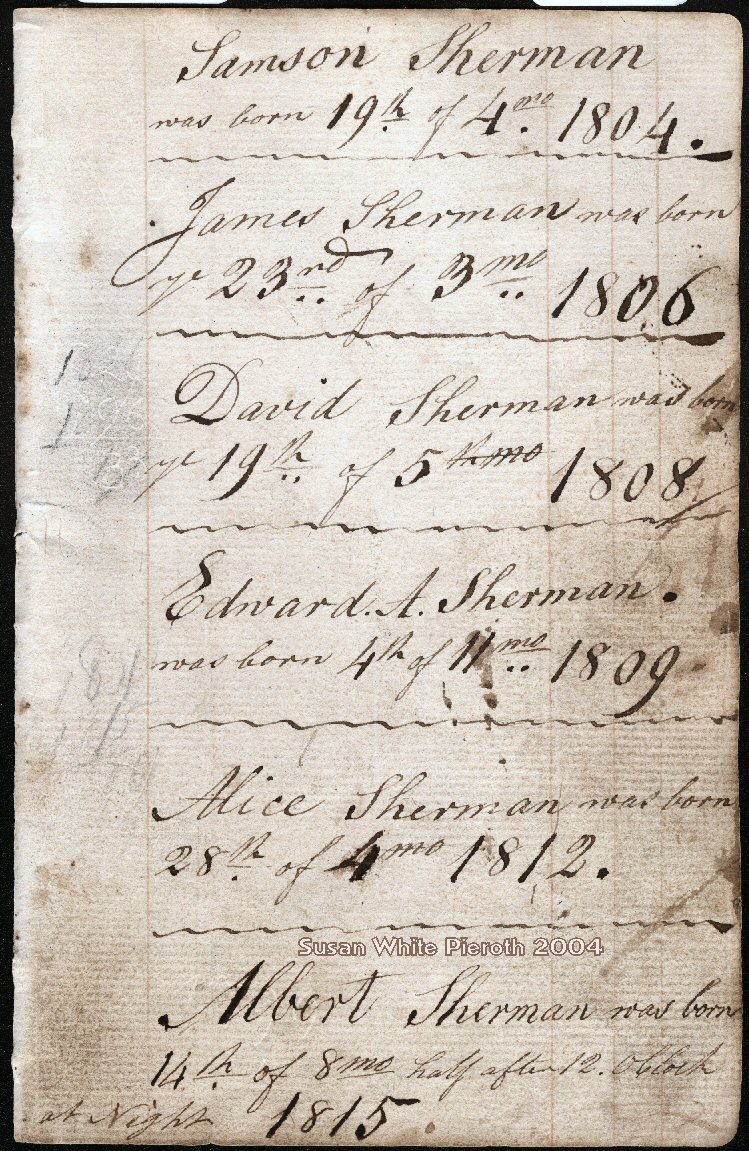 Samson Sherman
was born 19th of 4.mo 1804.
James Sherman was born
ye 23rd of 3mo 1806
David Sherman was born
ye 19th of 5thmo 1808
Edward. A. Sherman.
was born 4th of 11mo 1809
Alice Sherman was born
28th of 4mo 1812.
Susan White Pieroth 2004
Albert Sherman was born
14th of 8mo half after 12. Oclock
at Night 1815